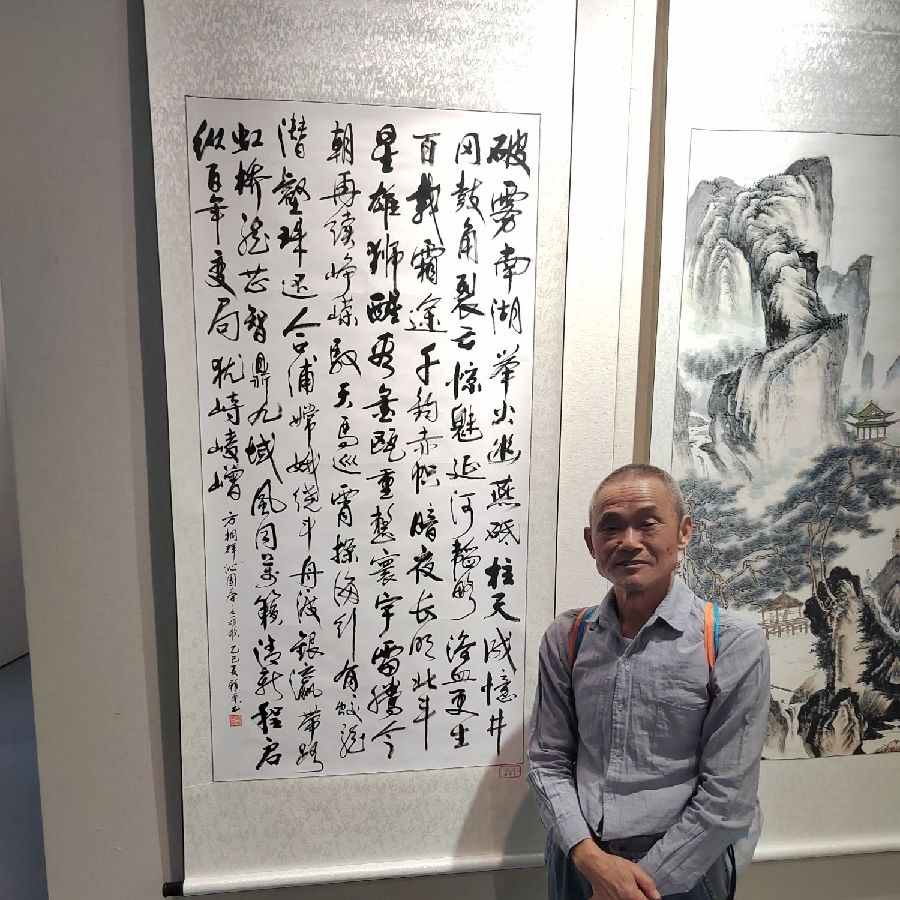 破雾南湖举火幽燕砥柱天成憶井
冈鼓角裂云惊魅延河韬略浴血更生
百载霜途千钧赤帜暗夜长明北斗
星雄狮醒看金瓯重整寰宇雷腾今
朝再续峥嵘驭天马巡霄探海行有蛟龙
潜壑珠还合浦嫦娥绕斗舟渡银瀛带路
虹桥龙芯智鼎九域风同万籁清新程启
纵百年变局犹峙崚嶒
方桐祥沁园春 乙巳夏